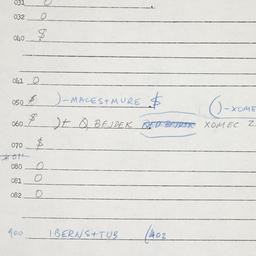 031 0
032 0
040 $
061 0
050 $ )-MACES+MURE $ ()-XOME
060 $ )+ Q BEJDEK XOMEC 2
070 $
080 0
081 0
082 0
400 IBERNS+TUB (402